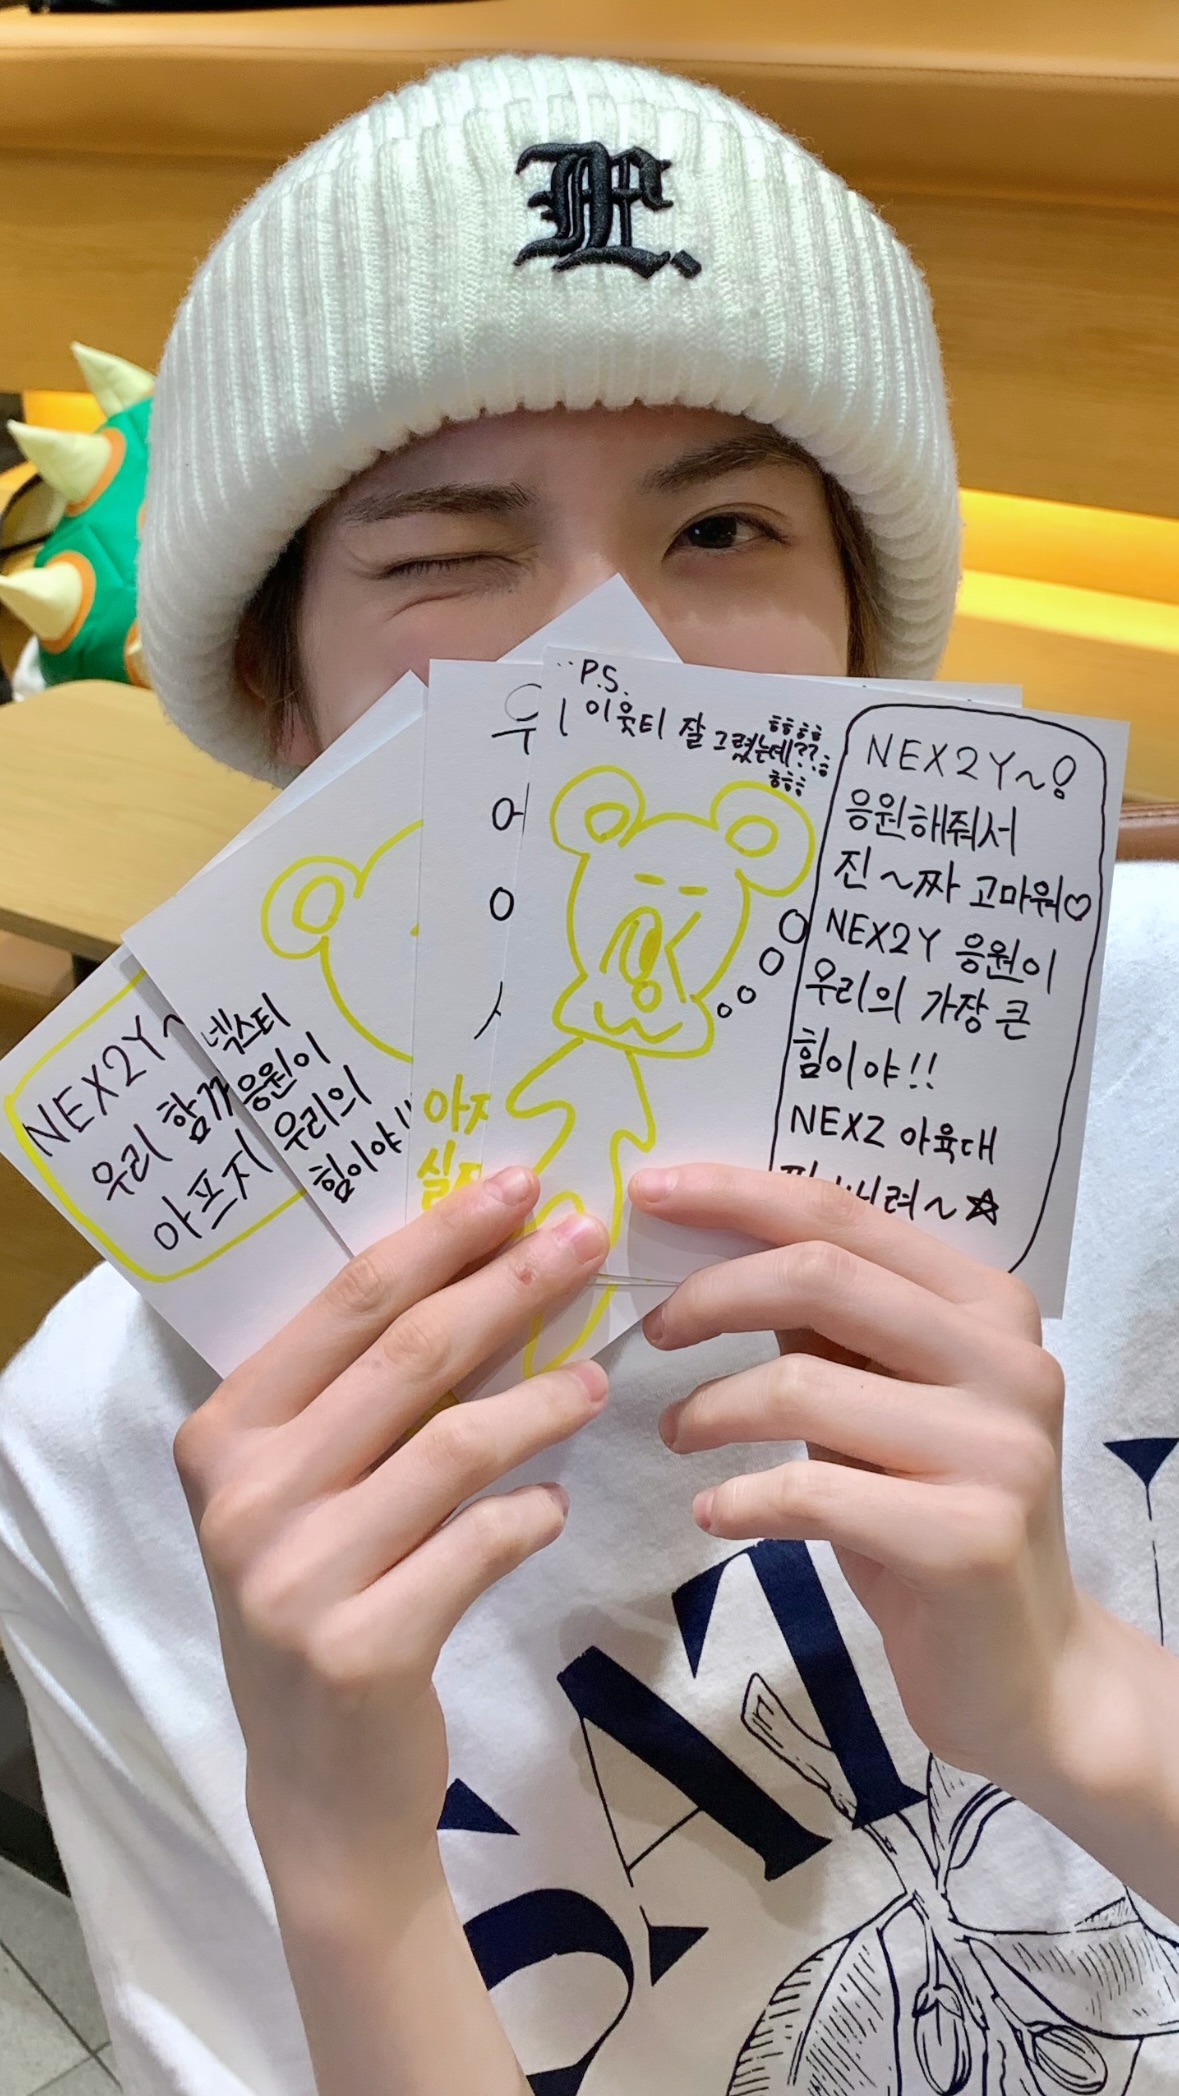 P.S.
이웃티 잘 그렸는데??
ㅎㅎㅎㅎ
ㅎ
ㅎㅎㅎ
NEX2Y~!
응원해줘서
진~짜 고마워♡
NEX2Y 응원이
우리의 가장 큰
힘이야!!
NEXZ 아육대
~☆
우리
넥스티
응원이
우리의
힘이야!!
NEX2Y~
우리
아프지
SAT